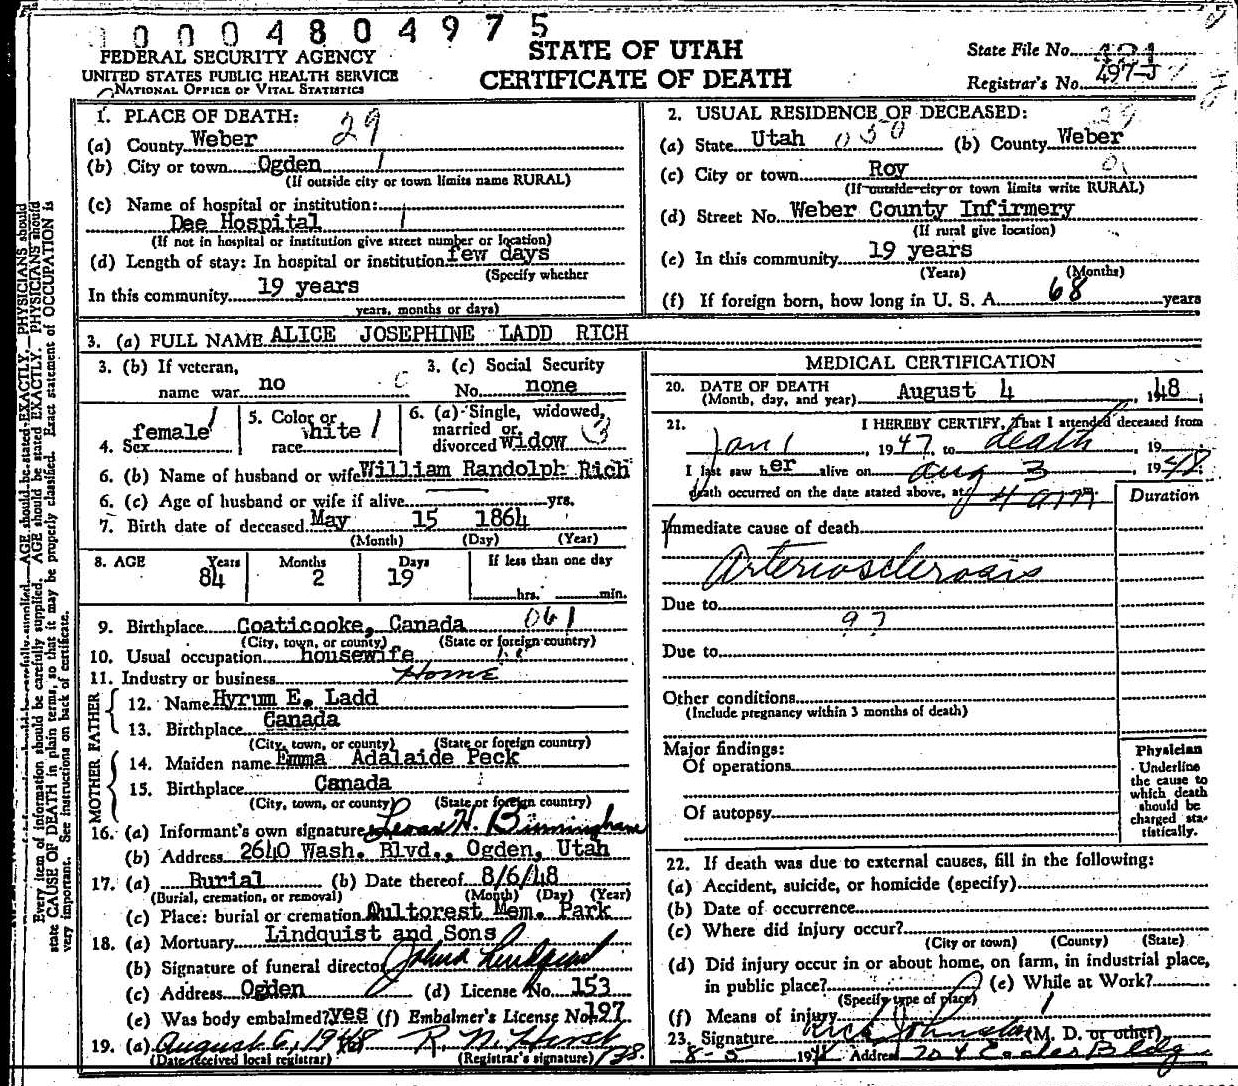 0004804975
FEDERAL SECURITY AGENCY
UNITED STATES PUBLIC HEALTH SERVICE
NATIONAL OFFICE OF VITAL STATISTICS
STATE OF UTAH
CERTIFICATE OF DEATH
State File No.
Registrar's No. 497-J
1. PLACE OF DEATH: 29
(a) County Weber
(b) City or town Ogden 1
(If outside city or town limits name RURAL)
(c) Name of hospital or institution:
Dee Hospital 1
(If not in hospital or institution give street number or location)
(d) Length of stay: In hospital or institution few days
(Specify whether
In this community 19 years
years, months or days)
2. USUAL RESIDENCE OF DECEASED: 29
(a) State Utah 050 (b) County Weber
(c) City or town Roy
(If outside city or town limits write RURAL)
(d) Street No. Weber County Infirmery
(If rural give location)
(e) In this community 19 years
(Years) (Months)
(f) If foreign born, how long in U. S. A. 68 years
3. (a) FULL NAME ALICE JOSEPHINE LADD RICH
3. (b) If veteran,
name war no
3. (c) Social Security
No. none
4. Sex female 1
5. Color or
race white 1
6. (a) Single, widowed,
married or
divorced widow 3
6. (b) Name of husband or wife William Randolph Rich
6. (c) Age of husband or wife if alive yrs.
7. Birth date of deceased May 15 1864
(Month) (Day) (Year)
8. AGE Years Months Days If less than one day
84 2 19
hrs. min.
9. Birthplace Coaticooke, Canada 061
(City, town, or county) (State or foreign country)
10. Usual occupation housewife
11. Industry or business Home
FATHER
12. Name Hyrum E. Ladd
13. Birthplace Canada
(City, town, or county) (State or foreign country)
MOTHER
14. Maiden name Emma Adalaide Peck
15. Birthplace Canada
(City, town, or county) (State or foreign country)
16. (a) Informant's own signature
(b) Address 2640 Wash. Blvd., Ogden, Utah
17. (a) Burial (b) Date thereof 8/6/48
(Burial, cremation, or removal) (Month) (Day) (Year)
(c) Place: burial or cremation Aultorest Mem. Park
18. (a) Mortuary Lindquist and Sons
(b) Signature of funeral director John A Lindquist
(c) Address Ogden (d) License No. 153
(e) Was body embalmed? yes (f) Embalmer's License No. 197
19. (a) August 6, 1948 R. M. Hirst
(Date received local registrar) (Registrar's signature)
MEDICAL CERTIFICATION
20. DATE OF DEATH August 4, 1948;
(Month, day, and year)
21. I HEREBY CERTIFY, That I attended deceased from
Jan 1, 1947, to death, 19
I last saw her alive on Aug 3, 1948
death occurred on the date stated above, at 4 am
Duration
Immediate cause of death
Arteriosclerosis
Due to
97
Due to
Other conditions
(Include pregnancy within 3 months of death)
Major findings:
Of operations
Of autopsy
Physician
Underline
the cause to
which death
should be
charged sta-
tistically.
22. If death was due to external causes, fill in the following:
(a) Accident, suicide, or homicide (specify)
(b) Date of occurrence
(c) Where did injury occur?
(City or town) (County) (State)
(d) Did injury occur in or about home, on farm, in industrial place,
in public place? (e) While at Work?
(Specify type of place)
(f) Means of injury
23. Signature Rich Johnston (M. D. or other)
8-5 1948 Address 704 Eccles Bldg
Every item of information should be carefully supplied. AGE should be stated EXACTLY. PHYSICIANS should
state CAUSE OF DEATH in plain terms, so that it may be properly classified. Exact statement of OCCUPATION is
very important. See instructions on back of certificate.